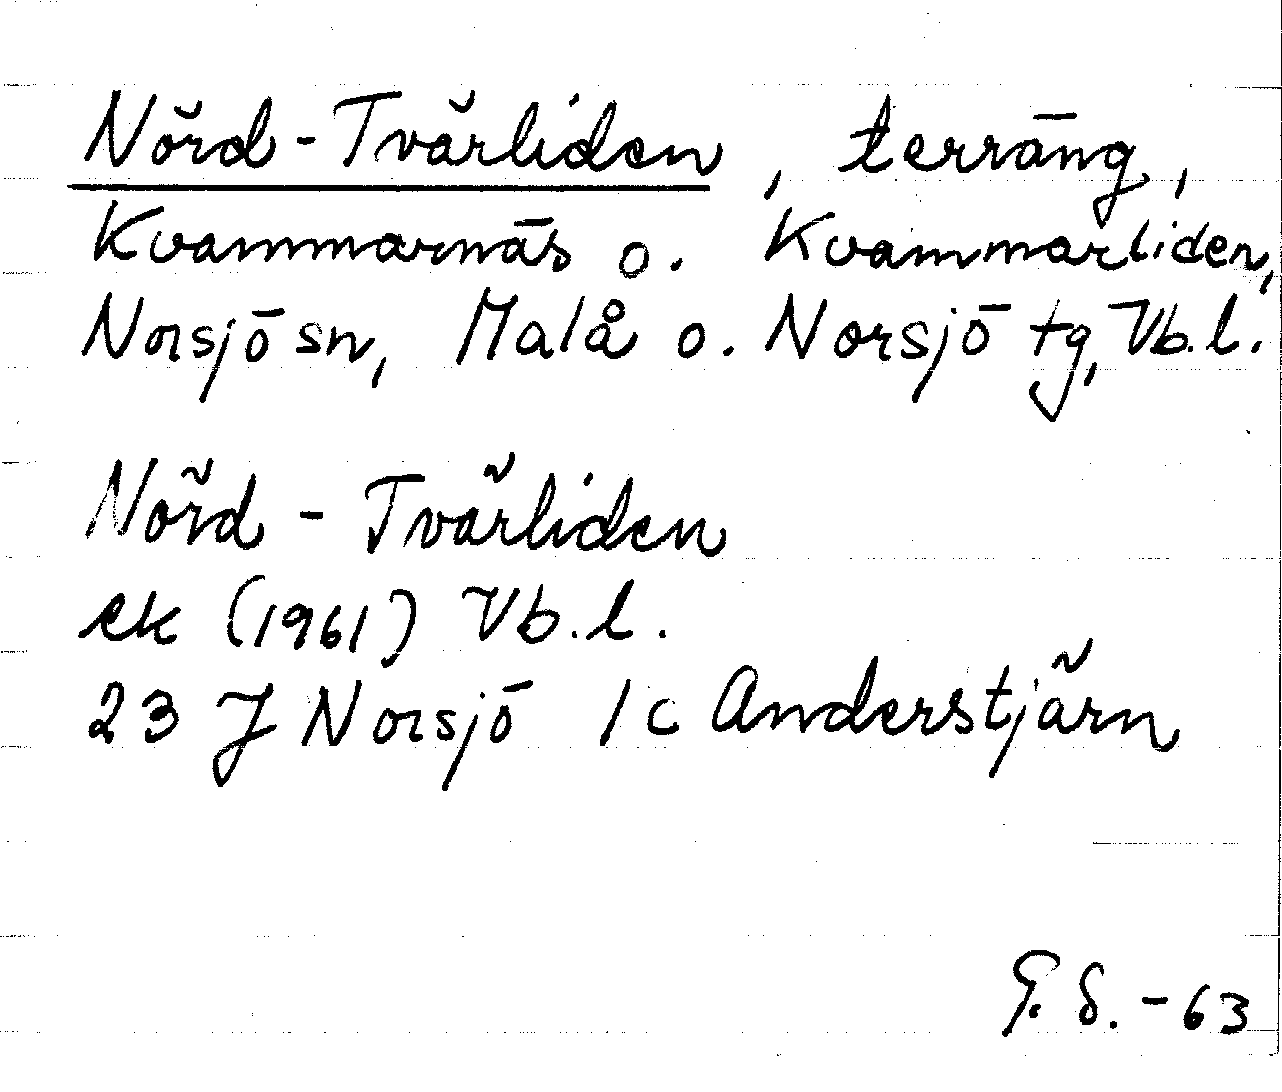 Nörd-Tvärliden, terräng,
Kvammarnäs o. Kvammarliden,
Norsjö sn, Malå o. Norsjö tg, Vb.l.
Nörd - Tvärliden
ek (1961) Vb.l.
23 J Norsjö 1c Anderstjärn
G. S. - 63